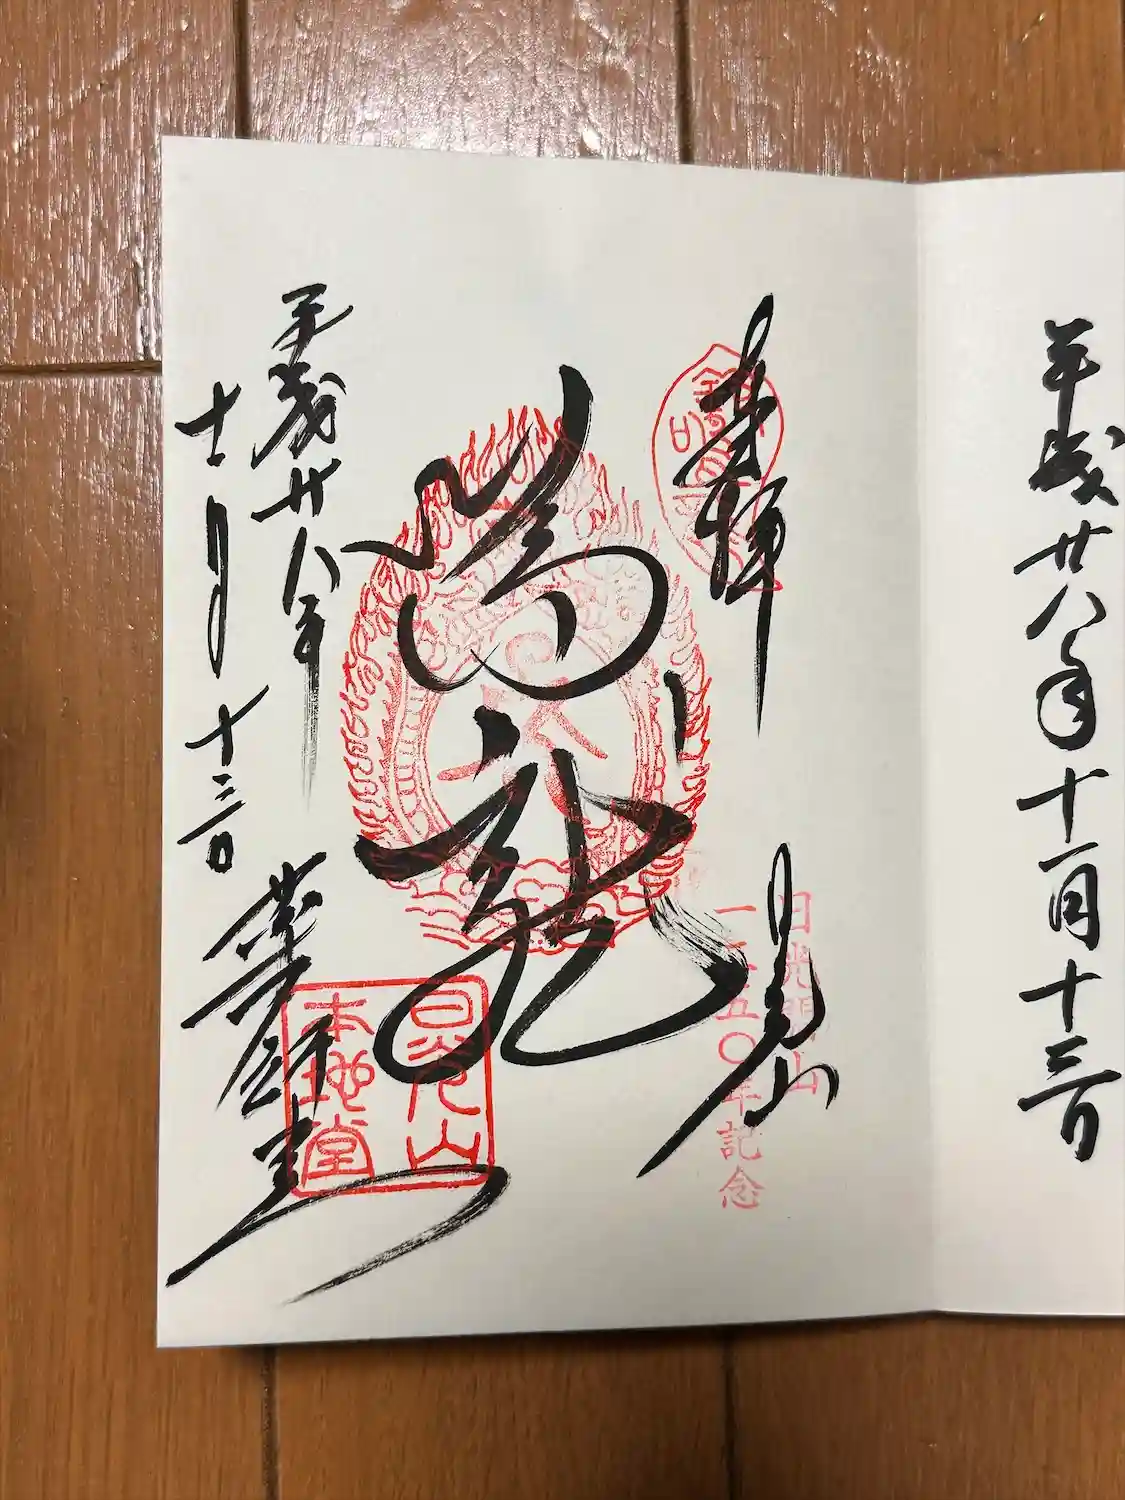 平成廿八年十一月十三日
奉拝
日光山
日光開山
一二五〇年記念
鳴龍
平成廿八年
十一月十三日
薬師堂
日光山
本地堂